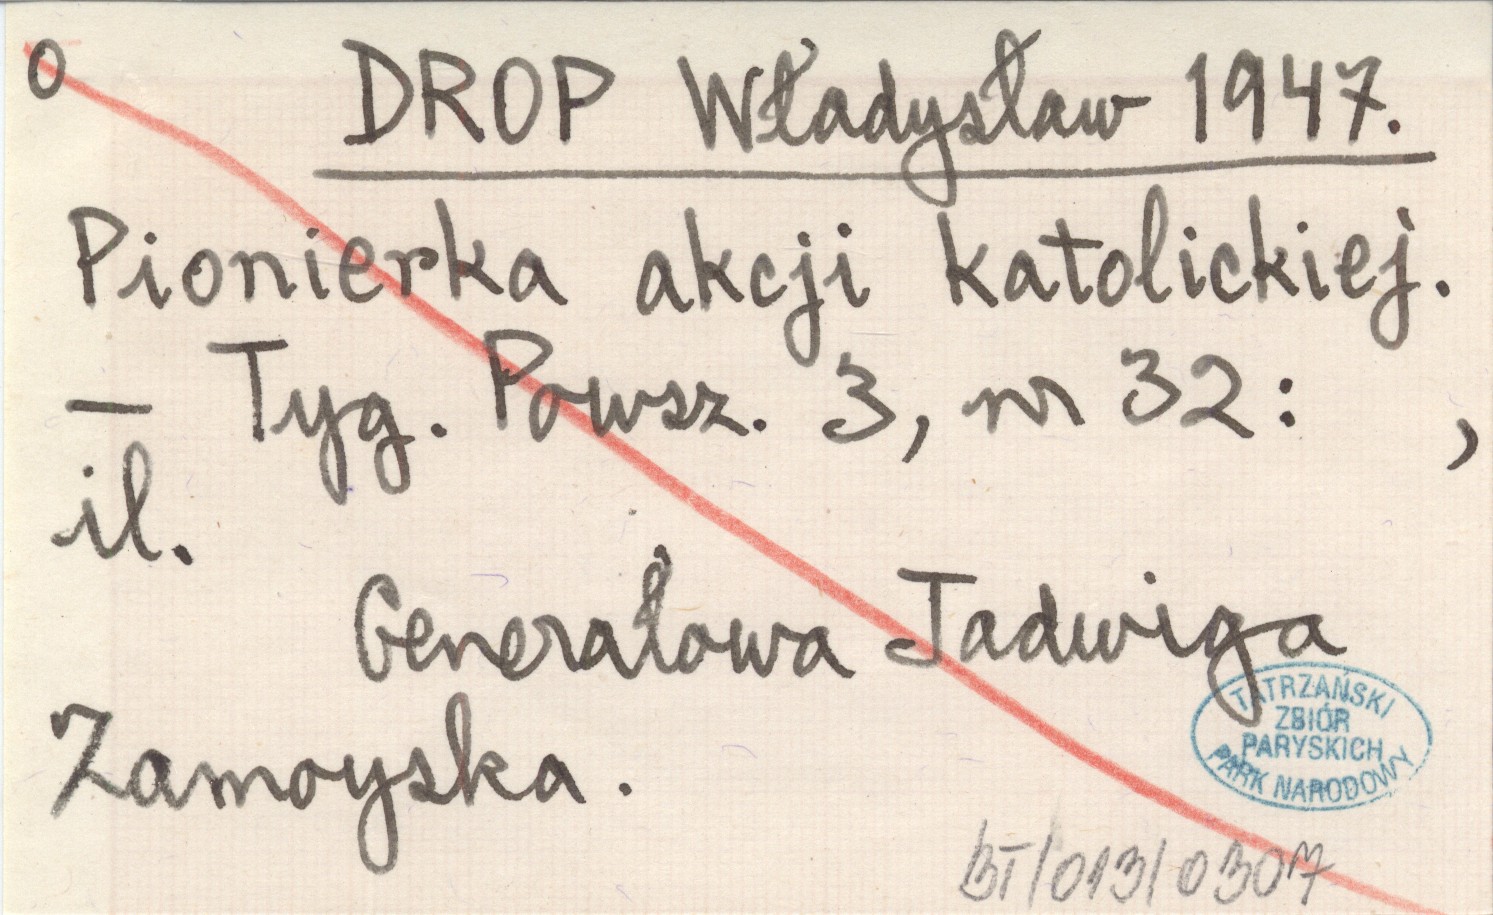 0 DROP Władysław 1947.
Pionierka akcji katolickiej.
— Tyg. Powsz. 3, nr 32: ,
il.
Generałowa Jadwiga
Zamoyska.
TATRZAŃSKI
ZBIÓR
PARYSKICH
PARK NARODOWY
BT/013/0307